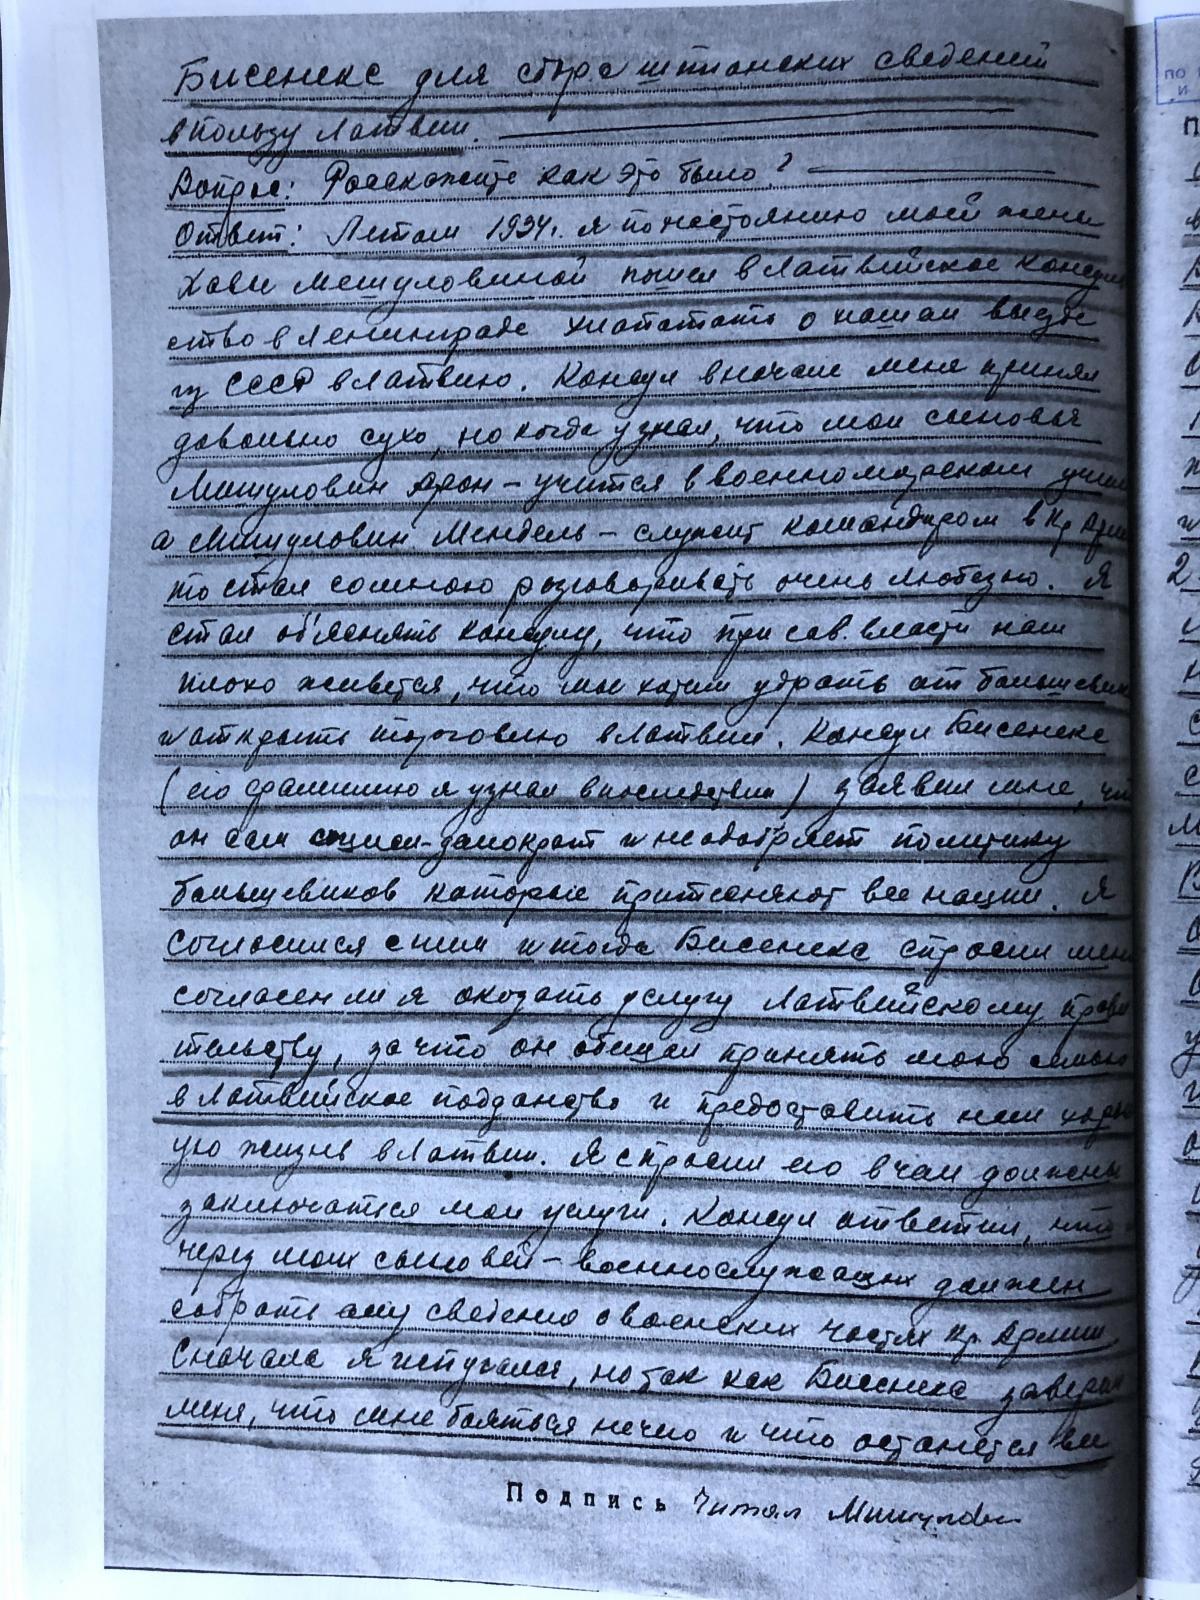 Бисенекс для сбора шпионских сведений
в пользу Латвии.
Вопрос: Расскажите как это было?
Ответ: Летом 1934г. я по настоянию моей жены
Хаси Мешуловиной пошел в Латвийское консуль
ство в Ленинграде хлопотать о нашем выезде
из СССР в Латвию. Консул вначале меня принял
довольно сухо, но когда узнал, что мои сыновья
Мишуловин Арон – учится в военноморском учил
а Мишуловин Мендель – служит командиром в Кр Арм
то стал со мною разговаривать очень любезно. Я
стал об'яснять консулу, что при сов. власти нам
плохо живется, что мы хотим удрать от большевик
и открыть торговлю в Латвии. Консул Бисенекс
(его фамилию я узнал впоследствии) заявил мне, что
он сам социал-демократ и не одобряет политику
большевиков которые притесняют все нации. Я
согласился с ним и тогда Бисенекс спросил меня
согласен ли я оказать услугу Латвийскому прави
тельству, за что он обещал принять мою семью
в Латвийское подданство и предоставить нам хорош
ую жизнь в Латвии. Я спросил его в чем должны
заключаться мои услуги. Консул ответил, что
через моих сыновей – военнослужащих должен
собрать ему сведения о воинских частях Кр. Армии.
Сначала я испугался, но так как Бисенекс заверил
меня, что мне бояться нечего и что останется все
Подпись Читал Мишулови
ПО
И
П
2